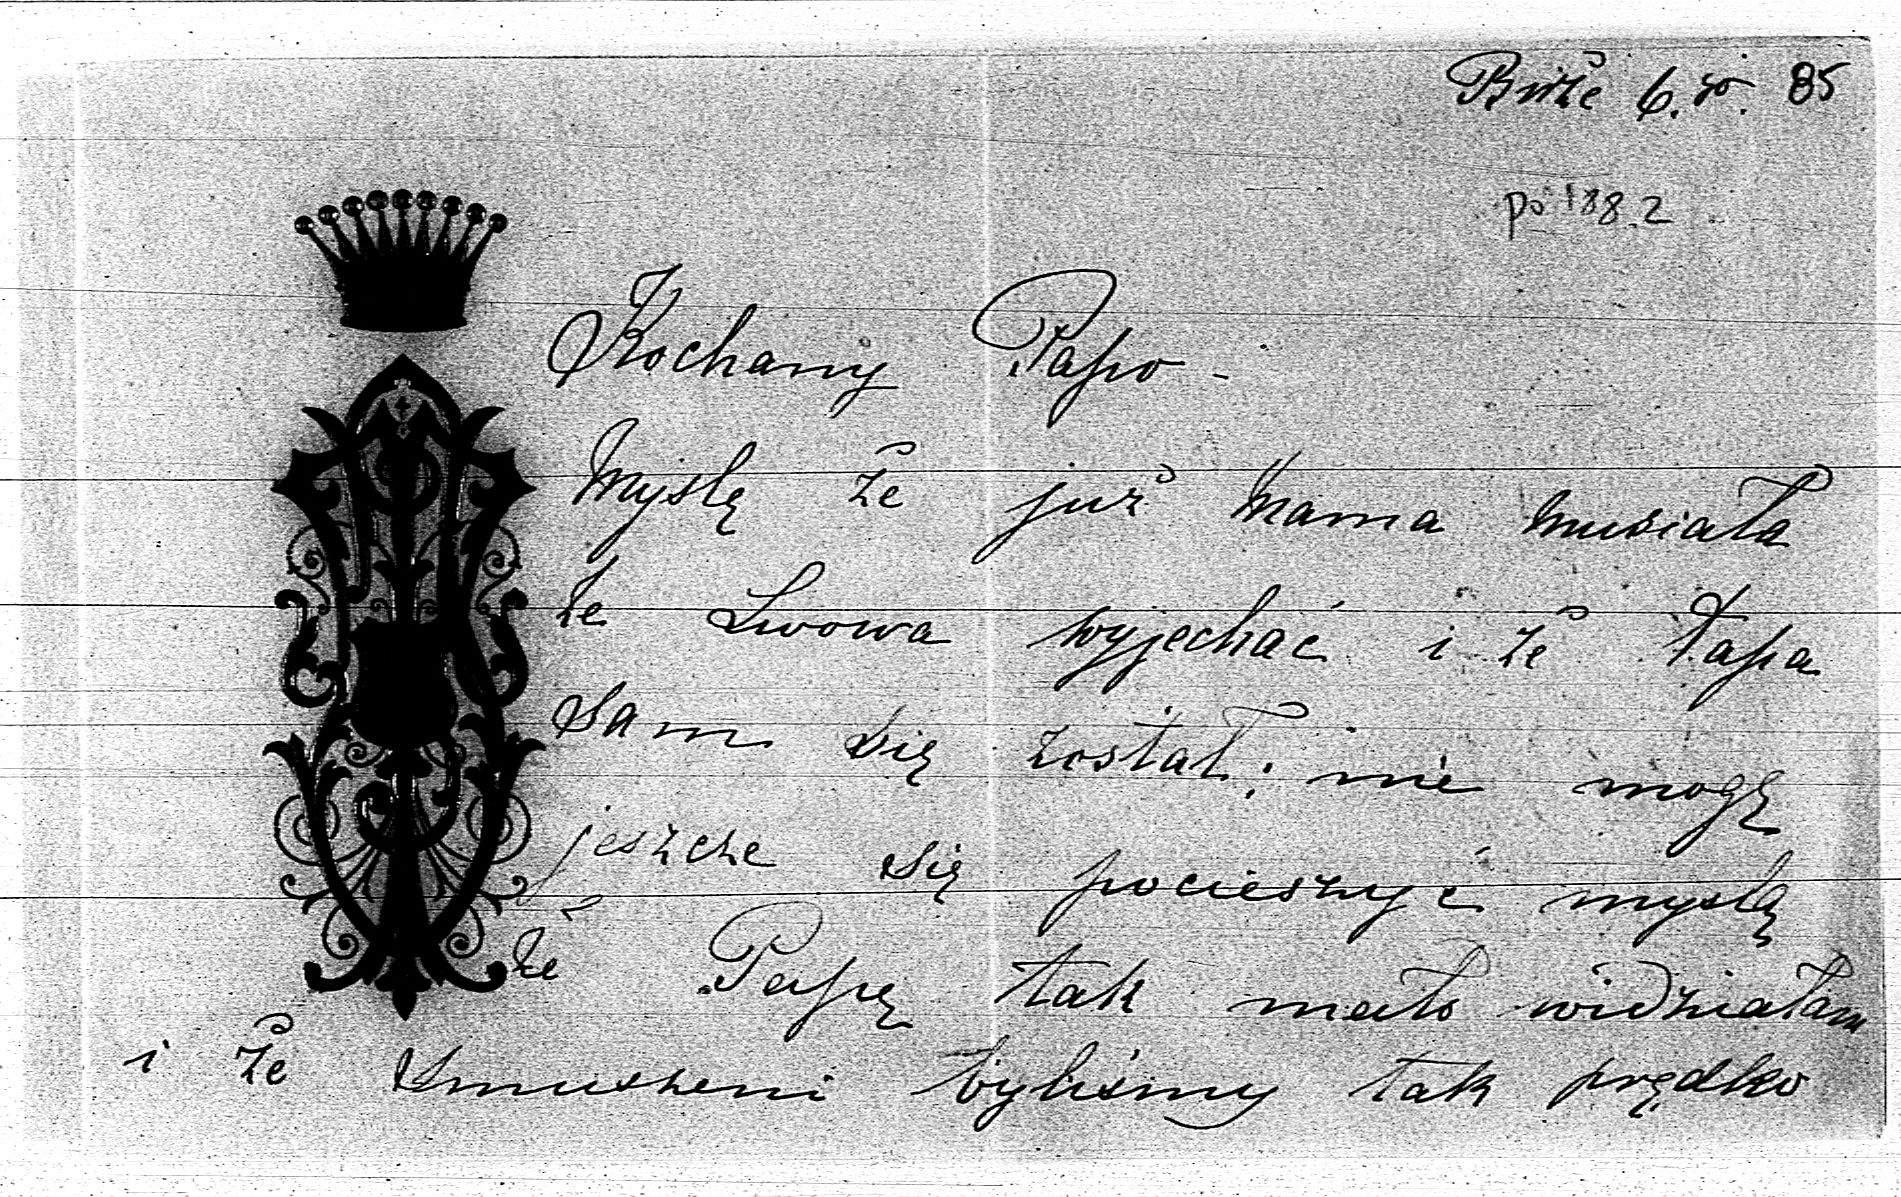 Birże 6. 85
po 188.2
Kochany Papo -
Myślę że już Mama musiała
ze Lwowa wyjechać i że Papa
sam się został; nie mogę
jeszcze się pocieszyć myślą
że Papę tak mało widziałam
i że zmuszeni byliśmy tak prędko